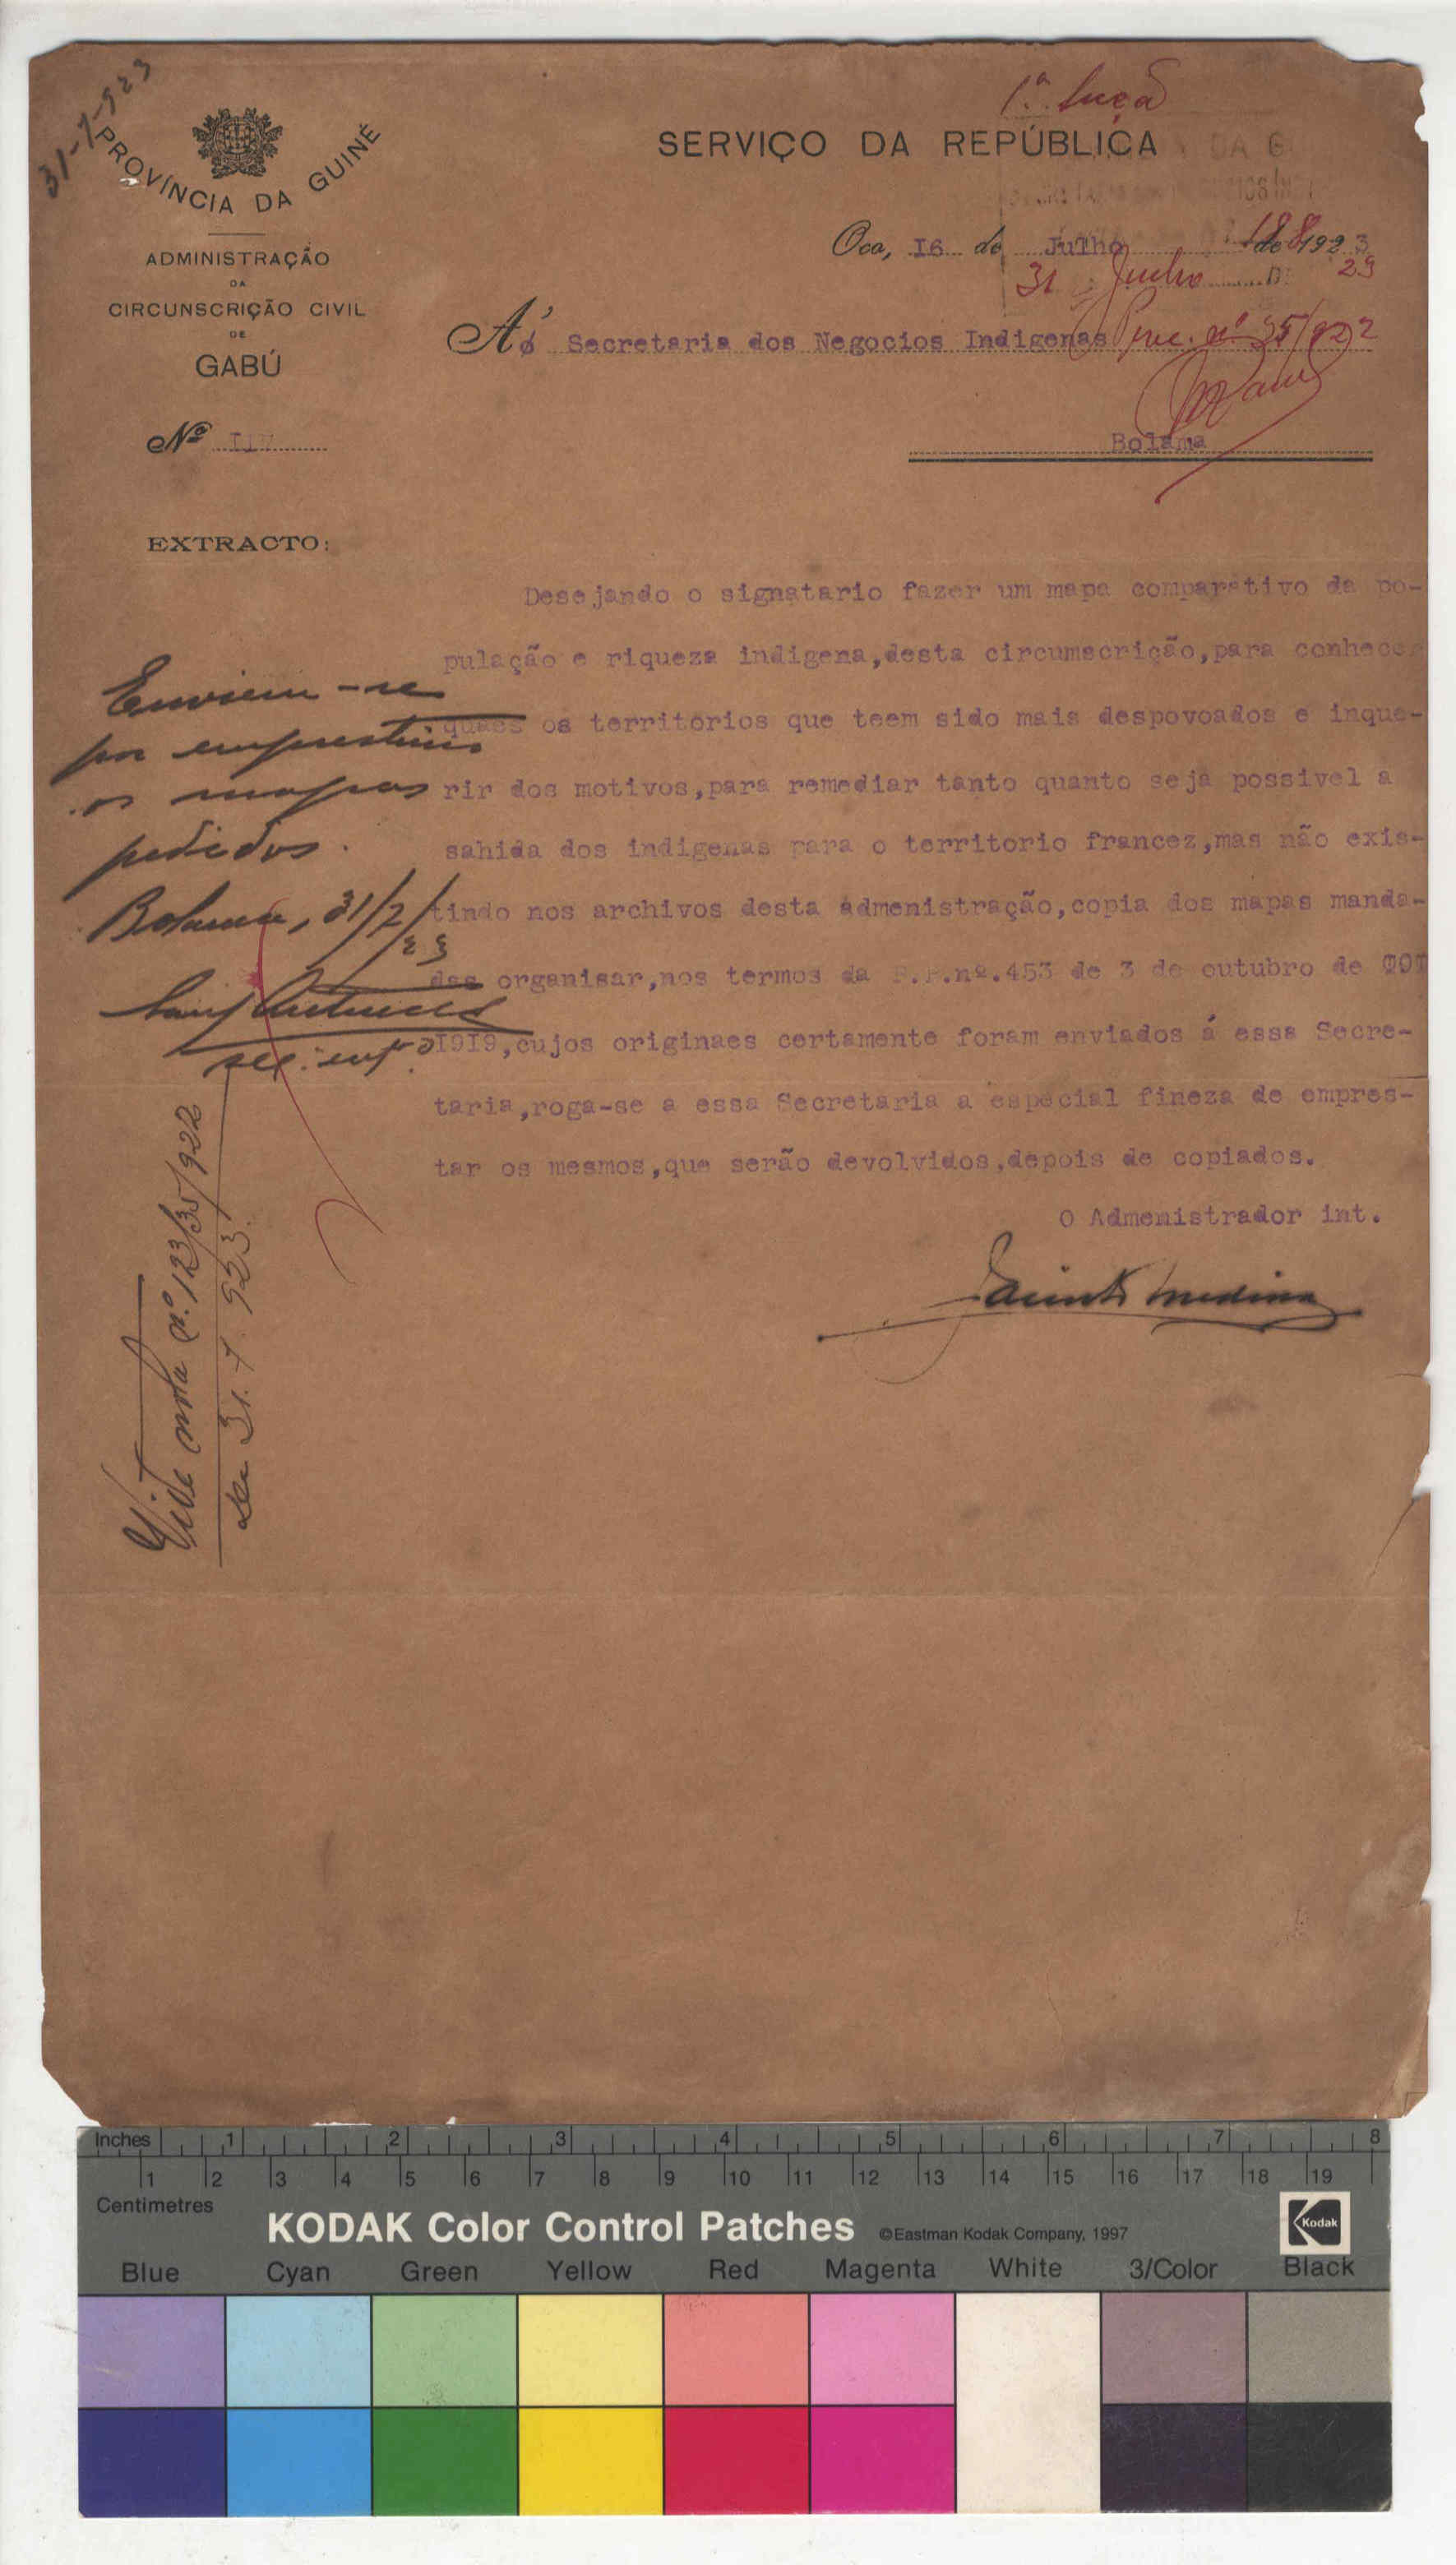 31-7-923
PROVÍNCIA DA GUINÉ
ADMINISTRAÇÃO
DA
CIRCUNSCRIÇÃO CIVIL
DE
GABÚ
Nº 117
EXTRACTO:
1ª
SERVIÇO DA REPÚBLICA
Oco, I6 de Julho de 1923
188
31 Junho DE 23
Á Secretaria dos Negocios Indigenas
Proc. nº 35/922
Bolama
Desejando o signatario fazer um mapa comparativo da po-
pulação e riqueza indigena,desta circumscrição,para conhecer
quaes os territorios que teem sido mais despovoados e inque-
rir dos motivos,para remediar tanto quanto seja possivel a
sahida dos indigenas para o territorio francez,mas não exis-
tindo nos archivos desta admenistração,copia dos mapas manda-
dos organisar,nos termos da P.P.nº.453 de 3 de outubro de
I9I9,cujos originaes certamente foram enviados á essa Secre-
taria,roga-se a essa Secretaria a especial fineza de empres-
tar os mesmos,que serão devolvidos,depois de copiados.
O Admenistrador int.
Medina
Enviem-se
por emprestimo
os mapas
pedidos.
Bolama, 31/7/23
Vide nota nº 123/35/922
de 31.7.923.
Inches 1 2 3 4 5 6 7 8
1 2 3 4 5 6 7 8 9 10 11 12 13 14 15 16 17 18 19
Centimetres
KODAK Color Control Patches ©Eastman Kodak Company, 1997 Kodak
Blue Cyan Green Yellow Red Magenta White 3/Color Black